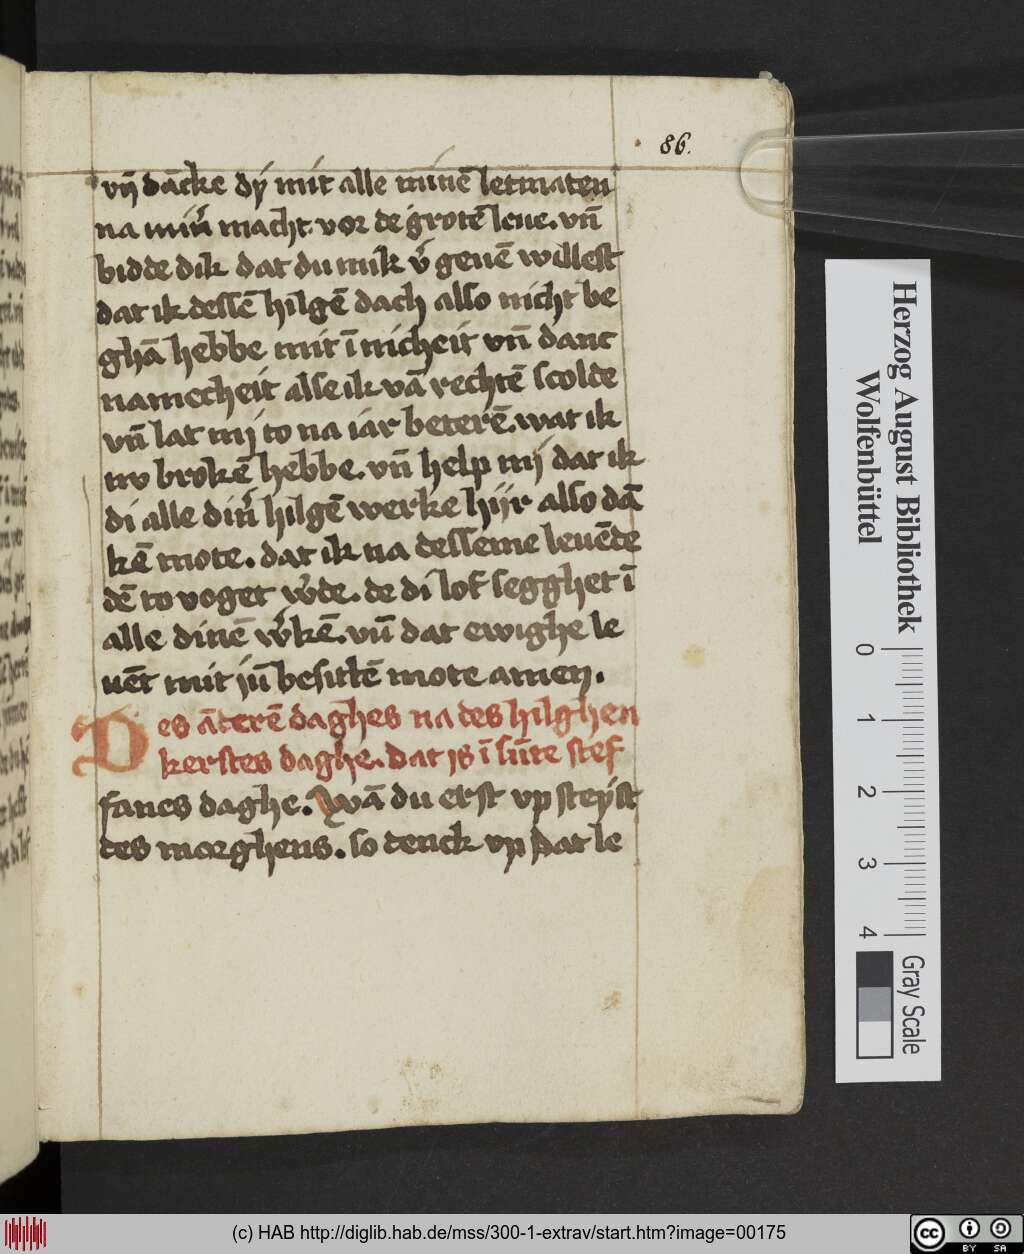 86.
vn̄ dācke dÿ mit alle minē letmaten
na min̄ macht vor de grotē leue. vn̄
bidde dik dat du mik v̄ geuē willest
dat ik dessē hilgē dach also nicht be
ghā hebbe mit īnicheit vn̄ danc
namecheit alse ik vā rechtē scolde
vn̄ lat mij to na iar beterē. wat ik
nv brokē hebbe. vn̄ help mij dat ik
di alle din̄ hilgē werke hijr also dā
kē mote. dat ik na desseme leuēde
dē to voget w̄de. de di lof segghet ī
alle dinē w̄kē. vn̄ dat ewighe le
uēt mit in̄ besittē mote amen.
Des āderē daghes na des hilghen
kerstes daghe. dat is ī sūte stef
fanes daghe. Wā du erst vp steÿst
des morghens. so denck vp dat le
Herzog August Bibliothek
Wolfenbüttel
0 1 2 3 4
Gray Scale
(c) HAB http://diglib.hab.de/mss/300-1-extrav/start.htm?image=00175
cc BY SA